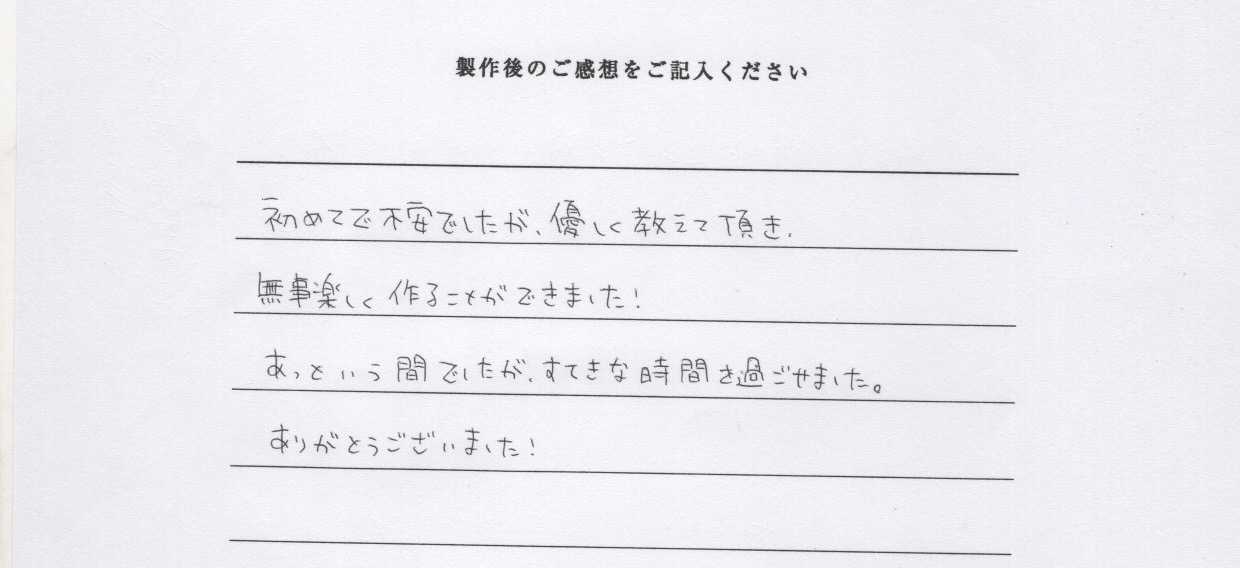 製作後のご感想をご記入ください
初めてで不安でしたが、優しく教えて頂き、
無事楽しく作ることができました!
あっという間でしたが、すてきな時間を過ごせました。
ありがとうございました!